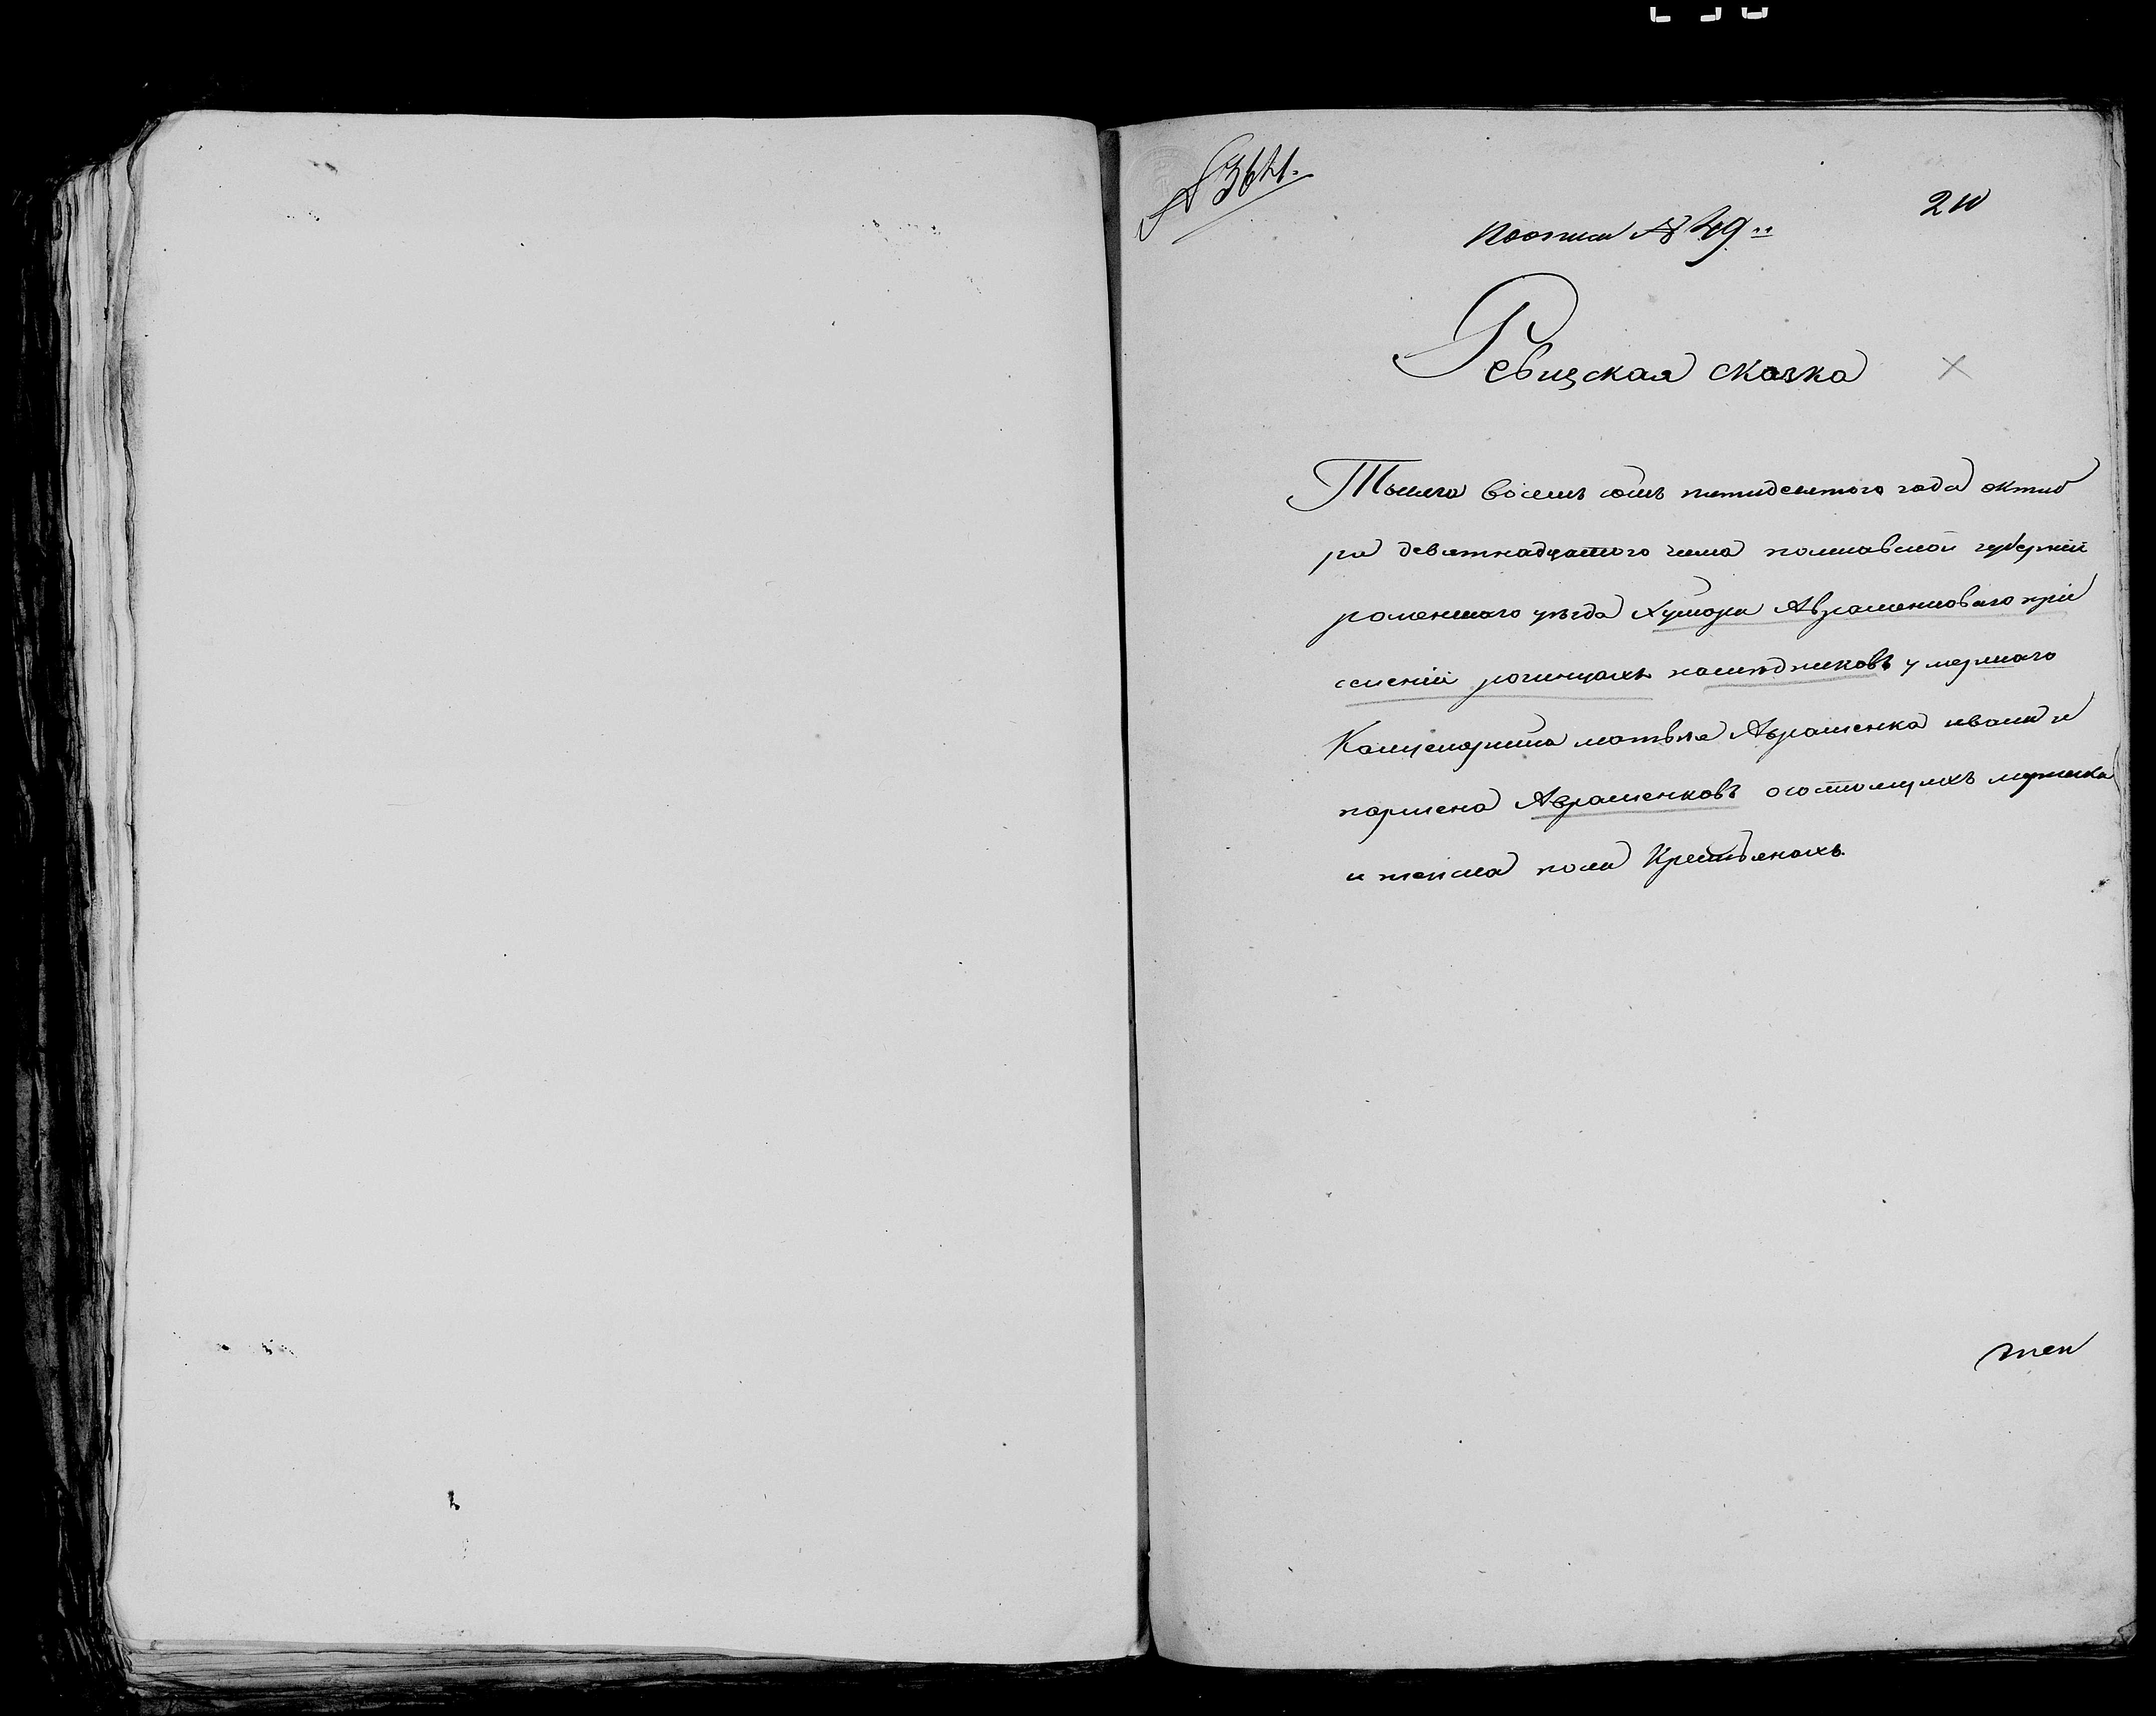 № 3641.
210
по описи № 49
Ревизская сказка
Тысяча восемь сотъ пятидесятого года октяб
ря девятнадцатого числа полтавской губерніи
роменского уѣзда хутора Авраменковаго при
селеніи рогинцахъ наслѣдниковъ умершаго
Канцеляриста матвѣя Авраменка ивана и
пармена Авраменковъ о состоящихъ мужеска
и женска пола Крестьянахъ